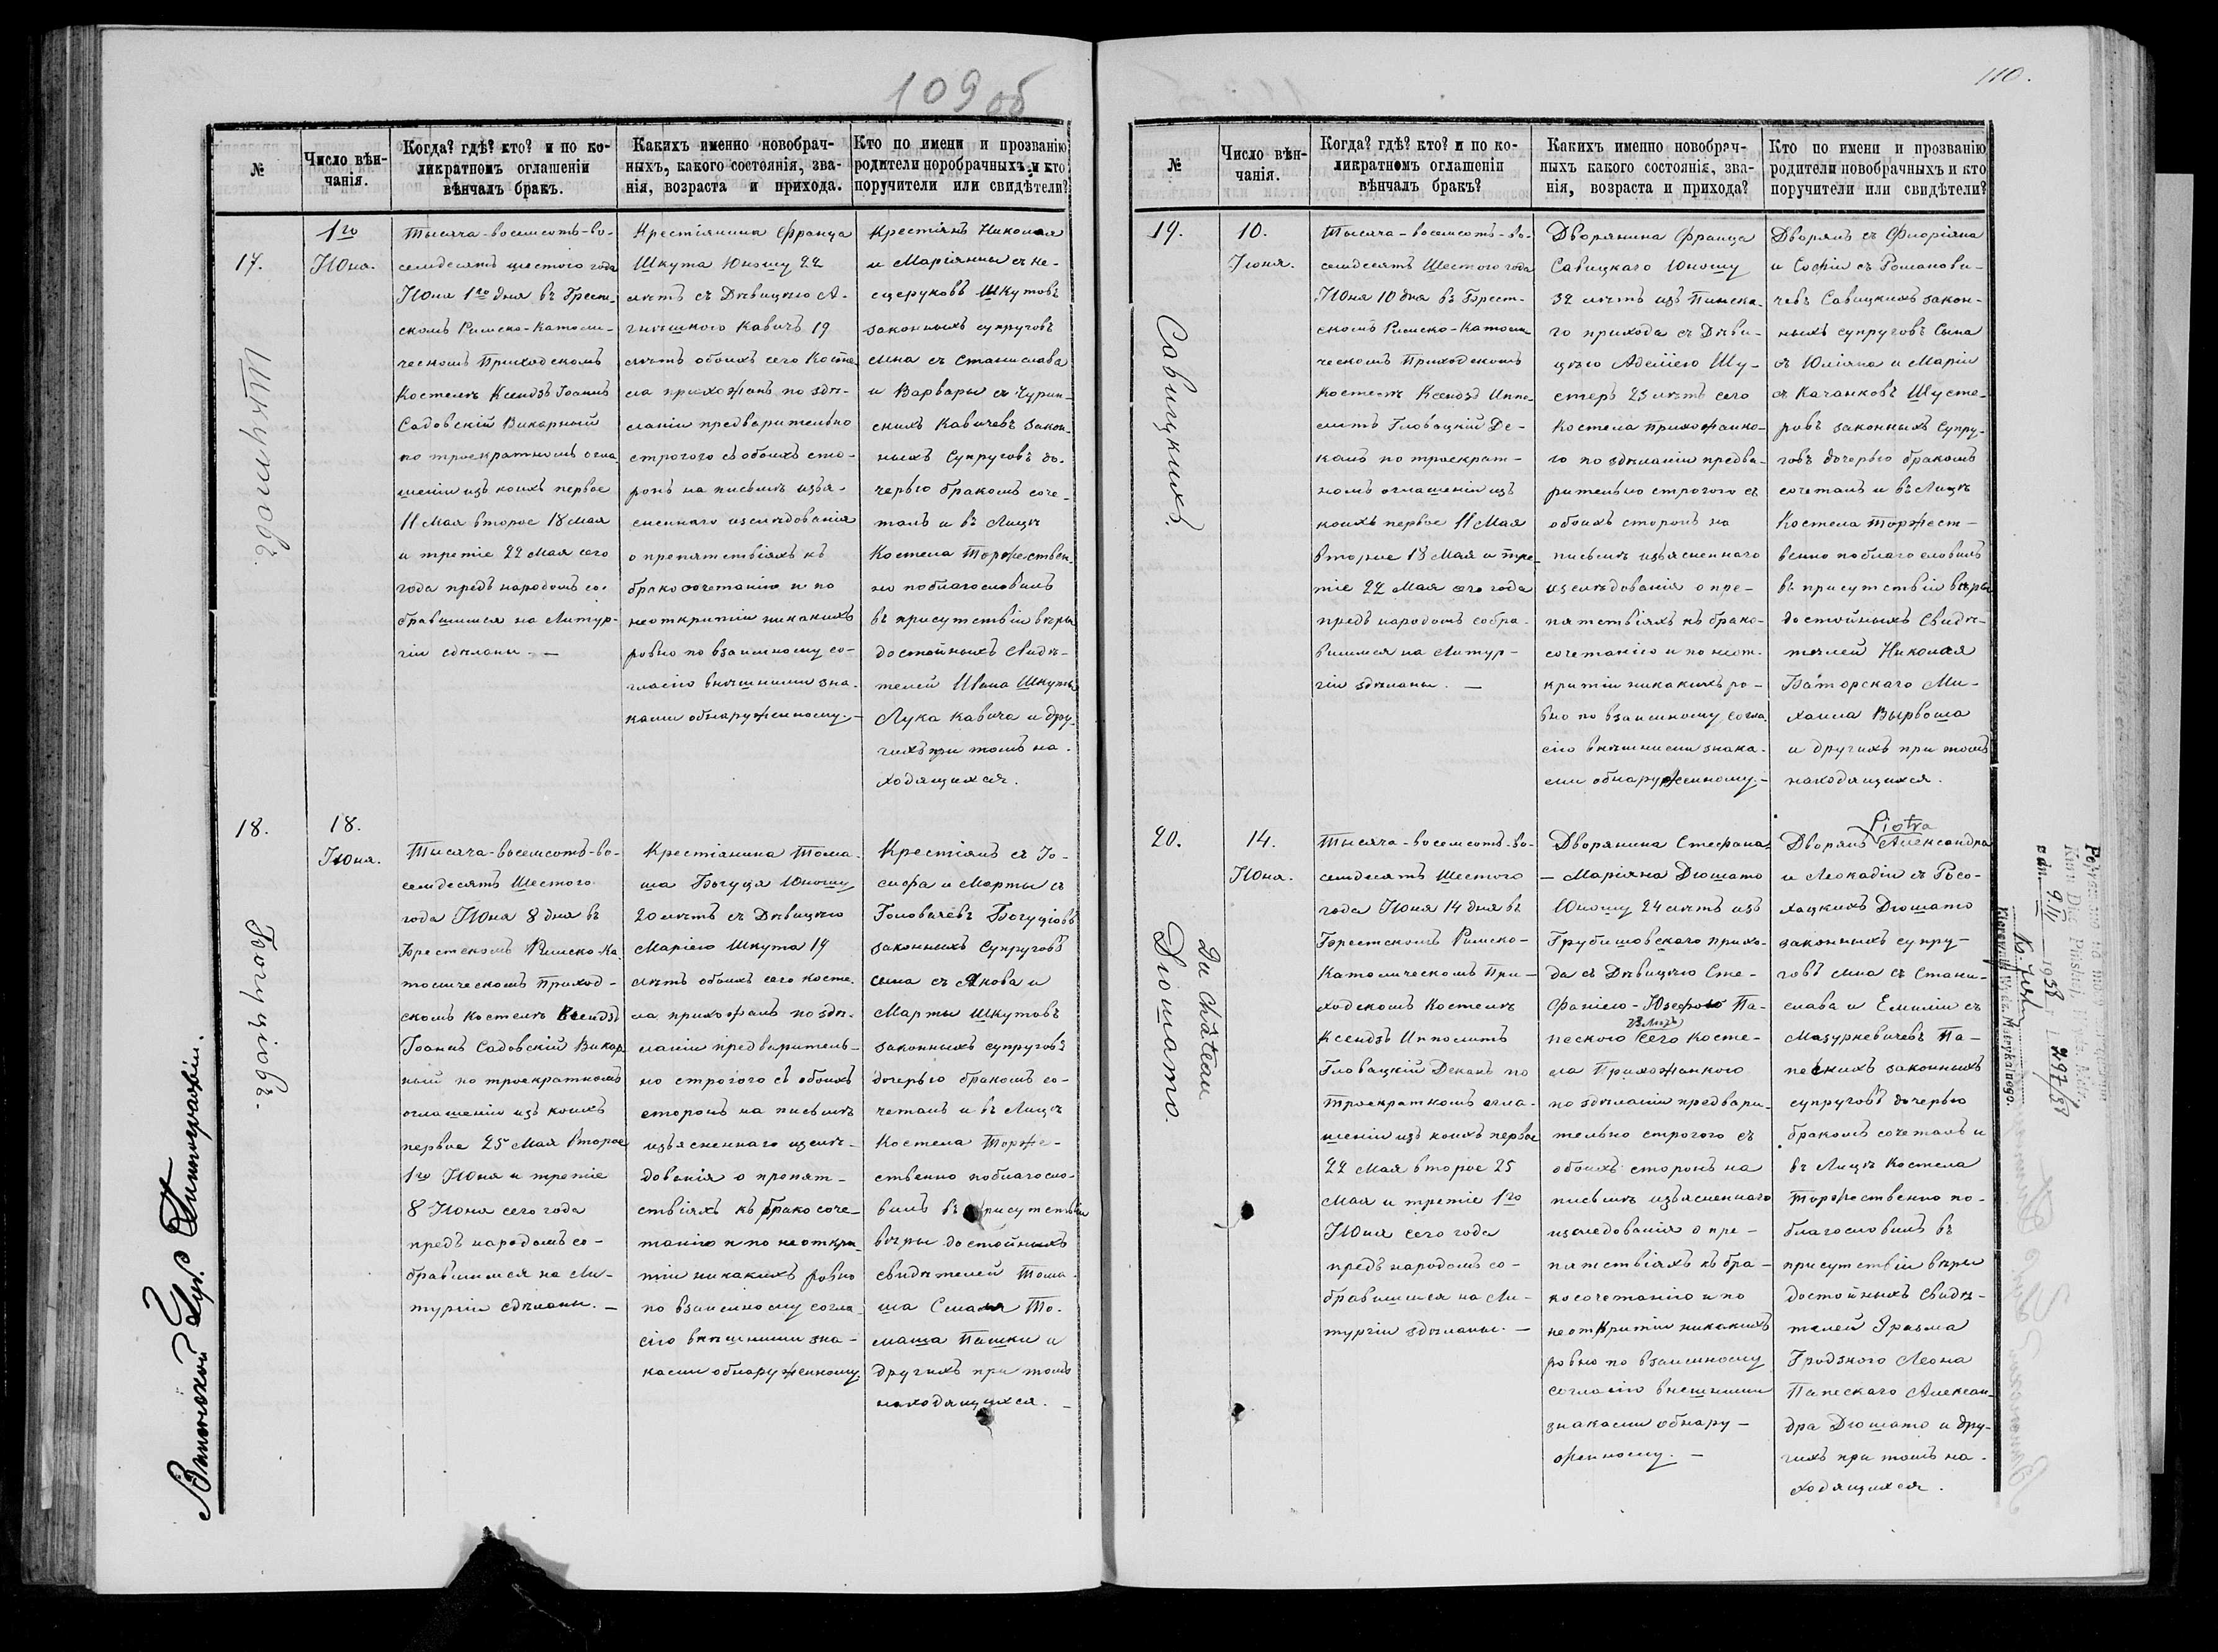 109 об
№
Число вѣн-
чанія.
Когда? гдѣ? кто? и по ко-
ликратномъ оглашеніи
вѣнчалъ бракъ.
Какихъ именно новобрач-
ныхъ, какого состоянія, зва-
нія, возраста и прихода.
Кто по имени и прозванію
родители новобрачныхъ и кто
поручители или свидѣтели?
17.
Шкутовъ.
1го
Іюня.
Тысяча-восемсотъ-во-
семдесятъ шестого года
Іюня 1го дня въ Брест-
скомъ Римско-Католи-
ческомъ Приходскомъ
Костелѣ Ксендзъ Іоаннъ
Садовскій Викарный
по троекратномъ огла-
шеніи изъ коихъ первое
11 Мая второе 18 мая
и третіе 22 Мая сего
года предъ народомъ со-
бравшимся на Литур-
гіи сдѣланы. —
Крестіянина Франца
Шкута Юношу 22
лѣтъ съ Дѣвицею А-
гнѣшкого Кавичъ 19
лѣтъ обоихъ сего Косте-
ла прихожанъ по здѣ-
ланіи предварительно
строгого съ обоихъ сто-
ронъ на письмѣ изъя-
сненнаго изслѣдованія
о препятствіяхъ къ
бракосочетанію и по
неоткритіи никакихъ
ровно по взаимному со-
гласію внѣшними зна-
ками обнаруженному. —
Крестіянъ Николая
и Маріянны съ Не-
щеруковъ Шкутовъ
законныхъ супруговъ
сына съ Станислава
и Варвары съ Чурин-
скихъ Кавичевъ закон-
ныхъ Супруговъ до-
черью бракомъ соче-
талъ и въ Лицѣ
Костела Торжествен-
но поблагословилъ
въ присутствіи вѣры
достойныхъ Свидѣ-
телей Ивана Шкуты
Лука Кавича и дру-
гихъ при томъ на-
ходящихся.
18.
Богуціовъ.
18.
Іюня.
Тысяча-восемсотъ-во-
семдесятъ Шестого
года Іюня 8 дня въ
Брестскомъ Римско-Ка-
толическомъ Приход-
скомъ Костелѣ Ксендзъ
Іоаннъ Садовскій Викар-
ный по троекратномъ
оглашеніи изъ коихъ
первое 25 Мая второе
1го Іюня и третіе
8 Іюня сего года
предъ народомъ со-
бравшимся на Ли-
тургіи сдѣланы. —
Крестіанина Тома-
ша Богуця Юношу
20 лѣтъ съ Дѣвицею
Маріею Шкута 19
лѣтъ обоихъ сего Косте-
ла прихожанъ по здѣ-
ланіи предваритель-
но строгого съ обоихъ
сторонъ на письмѣ
изъясненнаго изслѣ-
дованія о препят-
ствіяхъ къ бракосоче-
танію и по неоткри-
тіи никакихъ ровно
по взаимному согла-
сію внѣшними зна-
ками обнаруженному.
Крестіянъ съ Іо-
сифа и Марты съ
Головачевъ Богуціовъ
законныхъ Супруговъ
сына съ Якова и
Марты Шкутовъ
законныхъ супруговъ
дочерью бракомъ со-
четалъ и въ Лицѣ
Костела Торже-
ственно поблагосло-
вилъ въ присутствіи
вѣры достойныхъ
свидѣтелей Тома-
ша То-
маша Пашки и
другихъ при томъ
находящихся. —
Витебской Губ. Типографіи.
110.
№
Число вѣн-
чанія.
Когда? гдѣ? кто? и по ко-
ликратномъ оглашеніи
вѣнчалъ бракъ?
Какихъ именно новобрач-
ныхъ какого состоянія, зва-
нія, возраста и прихода?
Кто по имени и прозванію
родители новобрачныхъ и кто
поручители или свидѣтели?
19.
Савицкихъ.
10.
Іюня.
Тысяча-восемсотъ-во-
семдесятъ Шестого года
Іюня 10 дня въ Брест-
скомъ Римско-Католи-
ческомъ Приходскомъ
Костелѣ Ксендзъ Иппо-
литъ Гловацкій Де-
канъ по троекрат-
номъ оглашеніи изъ
коихъ первое 11 Мая
второе 18 Мая и тре-
тіе 22 Мая сего года
предъ народомъ собра-
вшимся на Литур-
гіи здѣланы. —
Дворянина Франца
Савицкаго Юношу
32 лѣтъ изъ Пинска-
го прихода съ Дѣви-
цею Аделіею Шу-
стеръ 25 лѣтъ сего
Костела прихожанко-
го по здѣланіи предва-
рительно строгого съ
обоихъ сторонъ на
письмѣ изъясненнаго
изслѣдованія о пре-
пятствіяхъ къ брако-
сочетанію и по неот-
критіи никакихъ ро-
вно по взаимному согла-
сію внѣшними знака-
ми обнаруженному. —
Дворянъ съ Флоріяна
и Софіи съ Романови-
чевъ Савицкихъ закон-
ныхъ супруговъ Сына
съ Юліяна и Маріи
съ Качанковъ Шусте-
ровъ законныхъ Супру-
говъ дочерью бракомъ
сочеталъ и въ Лицѣ
Костела Торжест-
венно поблагословилъ
въ присутствіи вѣры
достойныхъ Свидѣ-
телей Николая
Баторскаго Ми-
хаила Вырвоша
и другихъ при томъ
находящихся.
20.
Du Château
Дюшато.
14.
Іюня.
Тысяча-восемсотъ-во-
семдесятъ Шестого
года Іюня 14 дня въ
Брестскомъ Римско-
Католическомъ При-
ходскомъ Костелѣ
Ксендзъ Ипполитъ
Гловацкій Деканъ по
троекратномъ огла-
шеніи изъ коихъ первое
22 Мая второе 25
Мая и третіе 1го
Іюня сего года
предъ народомъ со-
бравшимся на Ли-
тургіи здѣланы. —
Дворянина Стефана-
— Маріяна Дюшато
Юношу 24 лѣтъ изъ
Грубишовского прихо-
да съ Дѣвицею Сте-
фаніею-Юзефою Па-
пеского 23 лѣтъ сего Косте-
ла Прихожанкого
по здѣланіи предвари-
тельно строгого съ
обоихъ сторонъ на
письмѣ изъясненнаго
изследованія о пре-
пятствіяхъ къ бра-
косочетанію и по
неоткритіи никакихъ
ровно по взаимному
согласію внешними
знаками обнару-
женному. —
Piotra
Дворянъ Александра
и Леокадіи съ Росо-
хацкихъ Дюшато
законныхъ супру-
говъ сына съ Стани-
слава и Емиліи съ
Мазуркевичевъ Па-
пескихъ законныхъ
супруговъ дочерью
бракомъ сочеталъ и
въ Лицѣ Костела
Торжественно по-
благословилъ въ
присутствіи вѣры
достойныхъ Свидѣ-
телей Эразма
Гродзкого Леона
Папескаго Алексан-
дра Дюшато и дру-
гихъ при томъ на-
ходящихся.